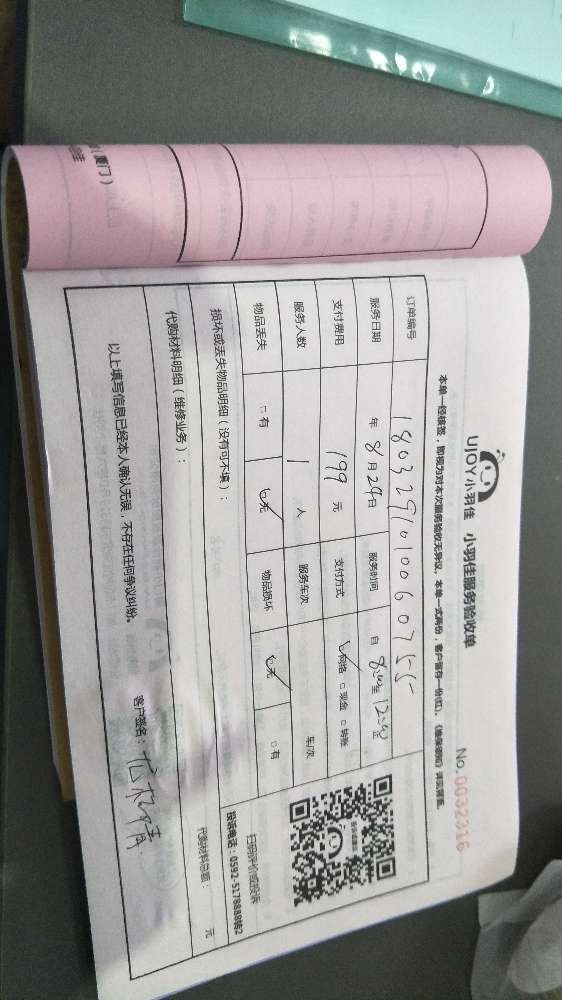 (厦门)
UJOY小羽佳 小羽佳服务验收单
No.0032316
本单一经核签，即视为对本次服务验收无异议。本单一式两份，客户留存一份(红)。《维保须知》详见背面。
订单编号 1803291010060755
服务日期 年 8 月 29 日 服务时间 自 8:00 至 12:00
支付费用 199 元 支付方式 ☑网络 □现金 □转账
服务人数 1 人 服务车次 车/次
物品丢失 □有 ☑无 物品损坏 ☑无 □有
扫码评价或投诉
投诉电话：0592-5178888转2
损坏或丢失物品明细（没有可不填）：
代购材料明细（维修业务）：
代购材料总额： 元
以上填写信息已经本人确认无误，不存在任何争议纠纷。 客户签名：